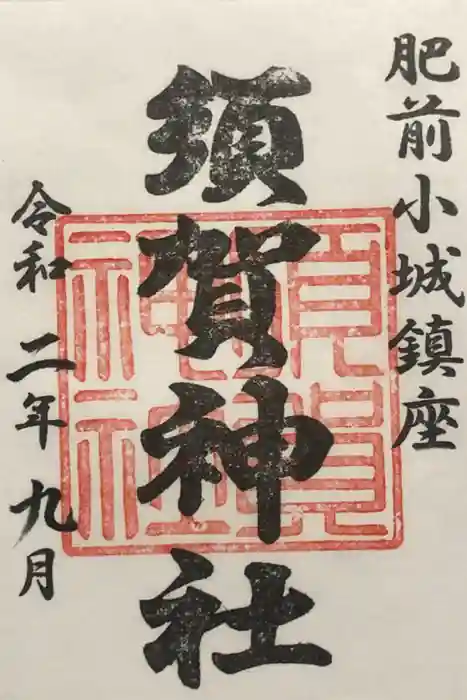 肥前小城鎮座
須賀神社
須賀
神社
令和 二年 九月